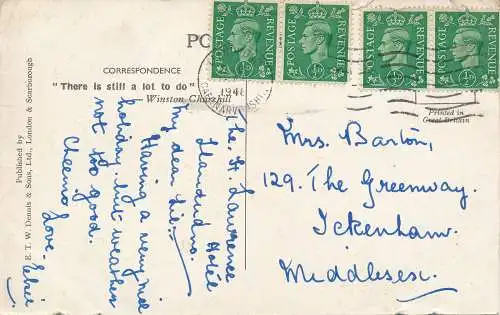 POSTAGE REVENUE
½D
POSTAGE REVENUE
½D
POSTAGE REVENUE
½D
POSTAGE REVENUE
½D
PO
CORRESPONDENCE
"There is still a lot to do"
Winston Churchill
194
CAERNARVONSHI
Printed in
Great Britain
Published by
E. T. W. Dennis & Sons, Ltd., London & Scarborough
The St. Lawrence
Hotel
Llandudno.
My dear Lil:—
Having a very nice
holiday, but weather
not too good.
Cheerio
Love. Elsie
Mrs. Barton,
129. The Greenway,
Ickenham.
Middlesex.